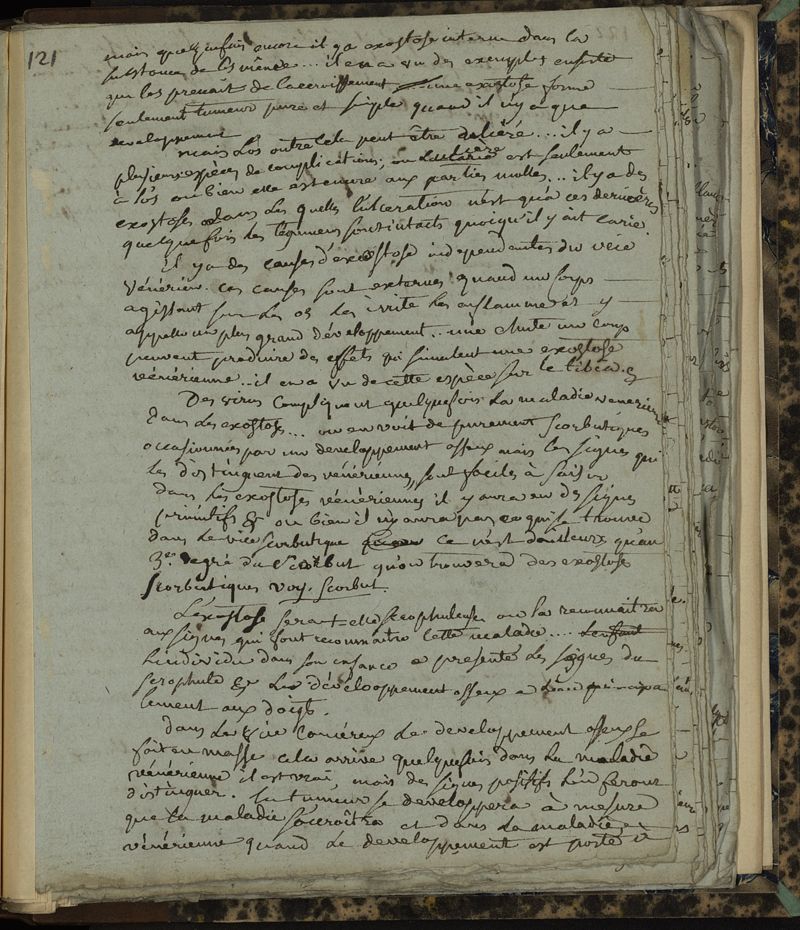 121
mais quelquefois encore il y a exostose interne dans la
substance de l'os même ... il en a vu des exemples ensuite
qui les prenait de l'accroissement une exostose forme
seulement tumeur pure et simple quand il n'y a que
developpement
mais l'os outre cela peut être altéré ... il y a
plusieurs espèces de complications, ou est seulement
à l'os ou bien elle est encore aux parties molles ... il y a des
exostoses dans les quelles l'ulceration n'est qu'à ces dernières
quelque fois les tégumens sont intacts quoiqu'il y ait carie.
Il y a des causes d'exostose indépendantes du vice
vénérien. ces causes sont externes quand un corps
agissant sur les os les irrite les enflamme et y
appelle un plus grand développement .. une chute un coup
peuvent produire des effets qui simulent une exostose
vénérienne .. il en a vu de cette espèce sur le tibia. &
Des virus compliquent quelquefois la maladie venerienne
dans les exostoses ... on en voit de purement scorbutiques
occasionnées par un developpement osseux mais les signes qui
les distinguent des vénériennes, sont faciles à saisir
dans les exostoses vénériennes il y aura eu des signes
primitifs & ou bien il n'y aura pas ce qui se trouve
dans le vice scorbutique ce n'est d'ailleurs qu'au
3.e degré du scorbut qu'on trouvera des exostose
scorbutiques voy. scorbut.
L'exostose sera-t-elle scrophuleuse on la reconnaitra
aux signes qui font reconnaitre cette maladie .... L'enfant
L'individu dans son enfance a présenté les signes du
scrophule & Le développement osseux a lieu principa
lement aux doigts.
dans Le vice cancéreux Le developpement osseux se
fait en masse cela arrive quelquefois dans la maladie
vénérienne il est vrai, mais des signes positifs l'en feront
distinguer. La tumeur se developpera à mesure
que la maladie s'accroîtra et dans la maladie
vénérienne quand Le developpement est porté à